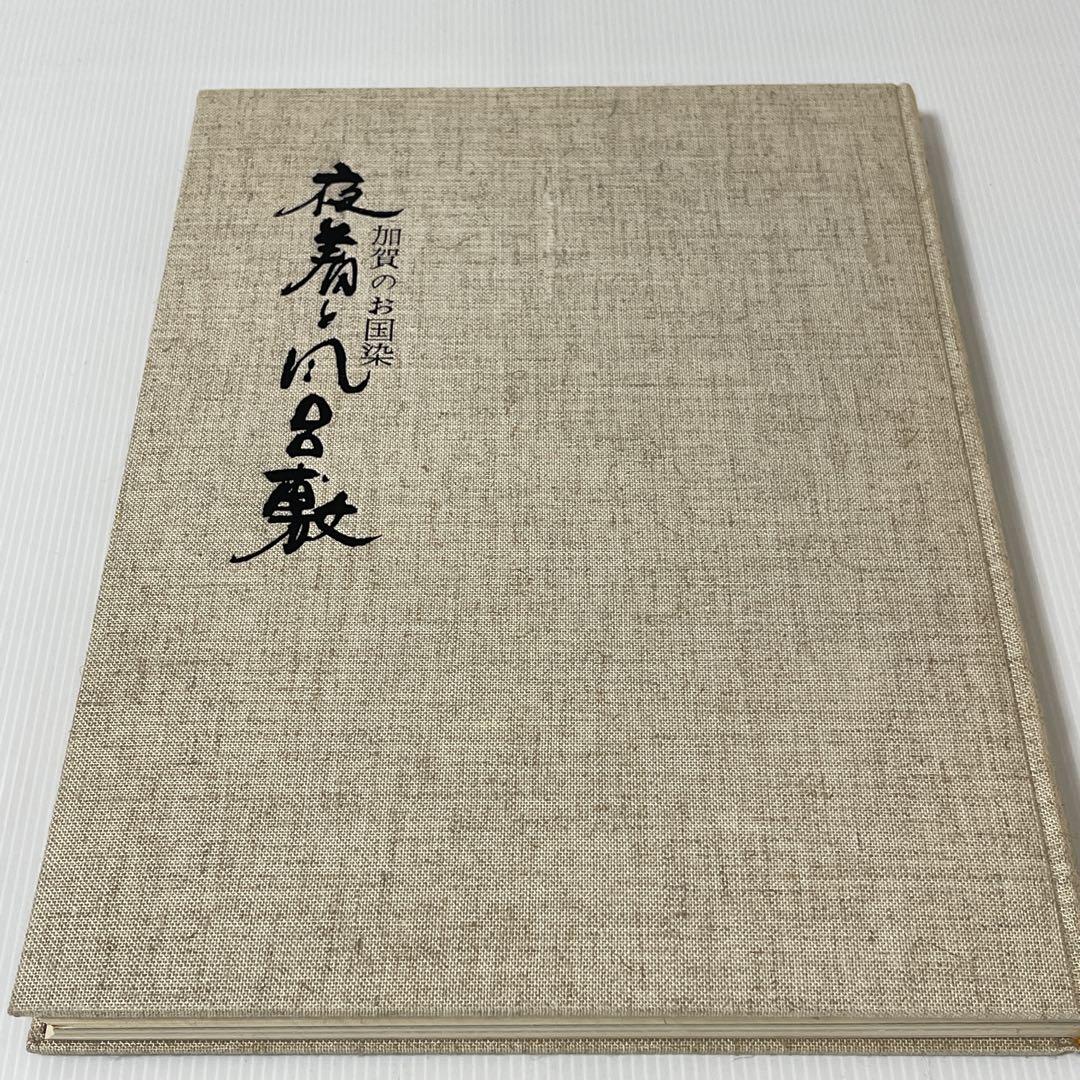 加賀のお国染
夜着と風呂敷